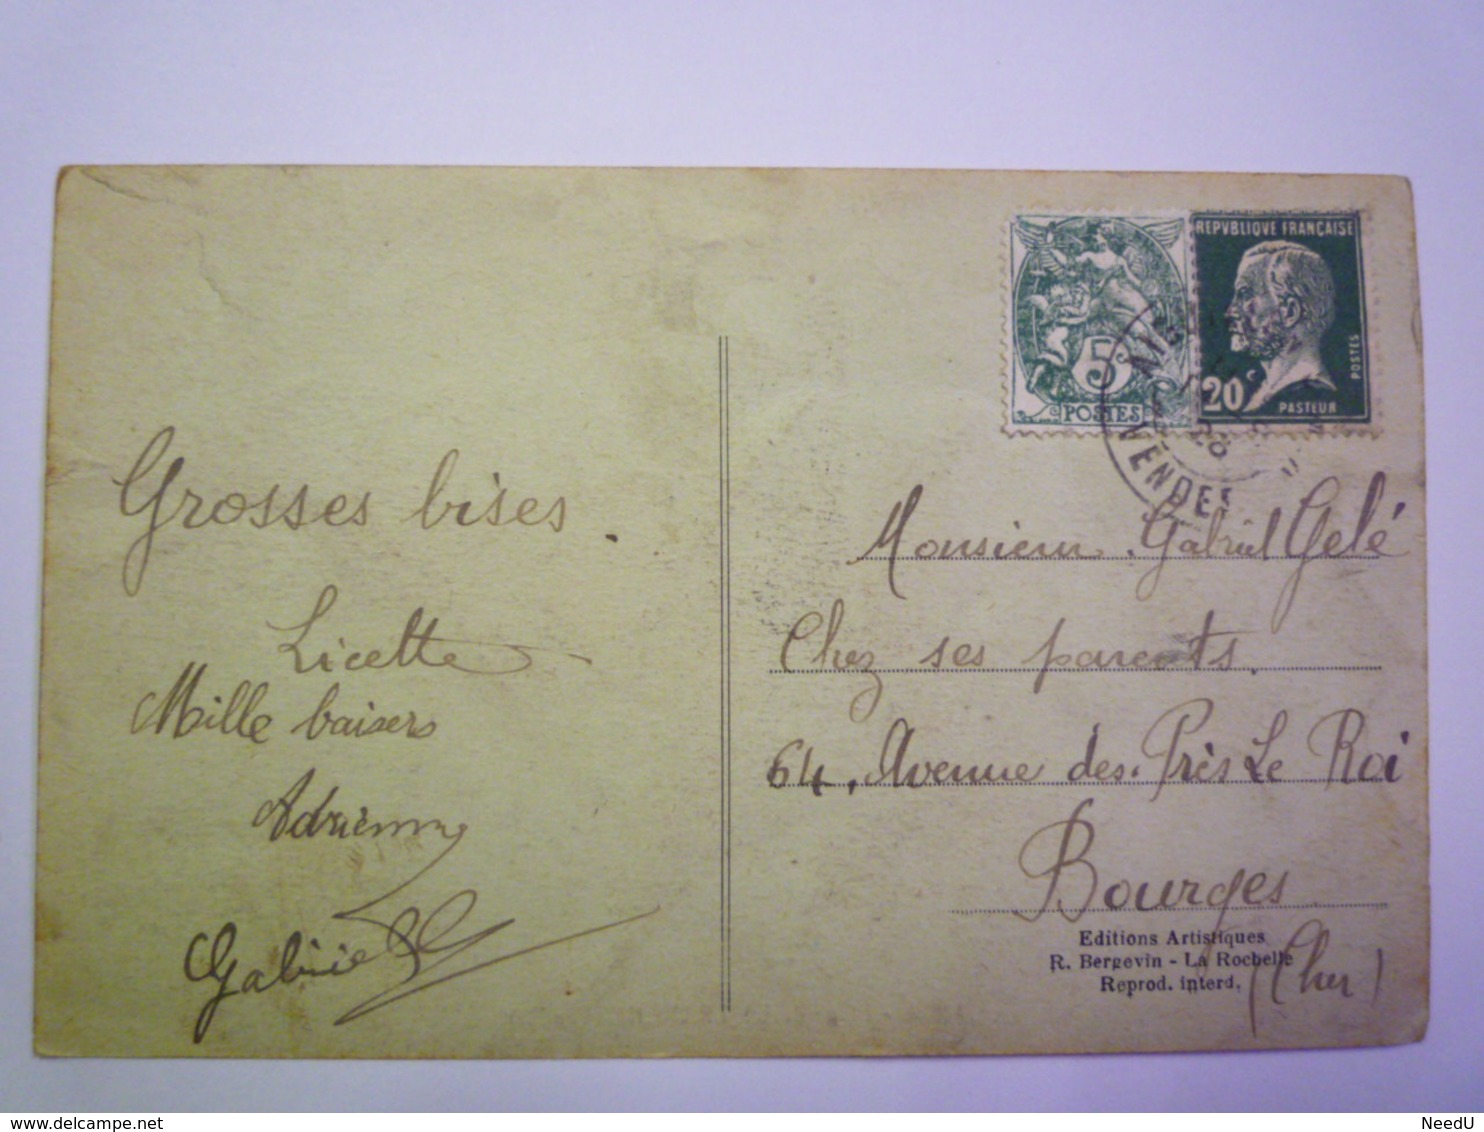 Grosses bises.
Licette
Mille baisers
Adrienne
Gabriel
5
POSTES
REPVBLIQVE FRANÇAISE
20c
POSTES
PASTEUR
VENDEE
Monsieur Gabriel Gelé
Chez ses parents.
64, Avenue des Près Le Roi
Bourges
(Cher)
Editions Artistiques
R. Bergevin - La Rochelle
Reprod. interd.
delcampe.net
NeedU